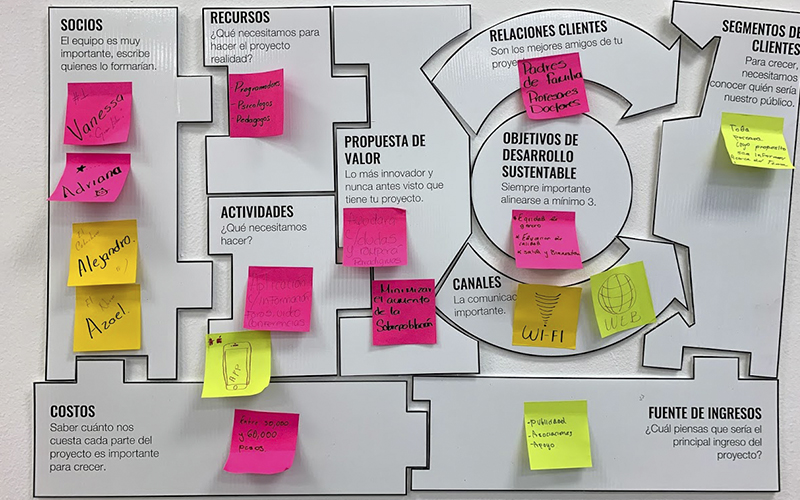 SOCIOS
El equipo es muy
importante, escribe
quienes lo formarían.
#1
Vanessa
Adriana
Alejandro.
Azael.
RECURSOS
¿Qué necesitamos para
hacer el proyecto
realidad?
Programadores
- Psicólogos
- Pedagogos
ACTIVIDADES
¿Qué necesitamos
hacer?
APP
PROPUESTA DE
VALOR
Lo más innovador y
nunca antes visto que
tiene tu proyecto.
Minimizar
el aumento
de la
Sobrepoblación
RELACIONES CLIENTES
Son los mejores amigos de tu
Padres
de familia
Profesores
Doctores
OBJETIVOS DE
DESARROLLO
SUSTENTABLE
Siempre importante
alinearse a mínimo 3.
Equidad de
género
Educación de
calidad
Salud y Bienestar
CANALES
La comunicac
importante.
WI-FI
WEB
SEGMENTOS DE
CLIENTES
Para crecer,
necesitamos
conocer quién sería
nuestro público.
Toda
persona
COSTOS
Saber cuánto nos
cuesta cada parte del
proyecto es importante
para crecer.
Entre 50,000
y 60,000
pesos
FUENTE DE INGRESOS
¿Cuál piensas que sería el
principal ingreso del
proyecto?
- publicidad
- Asociaciones
- Apoyo